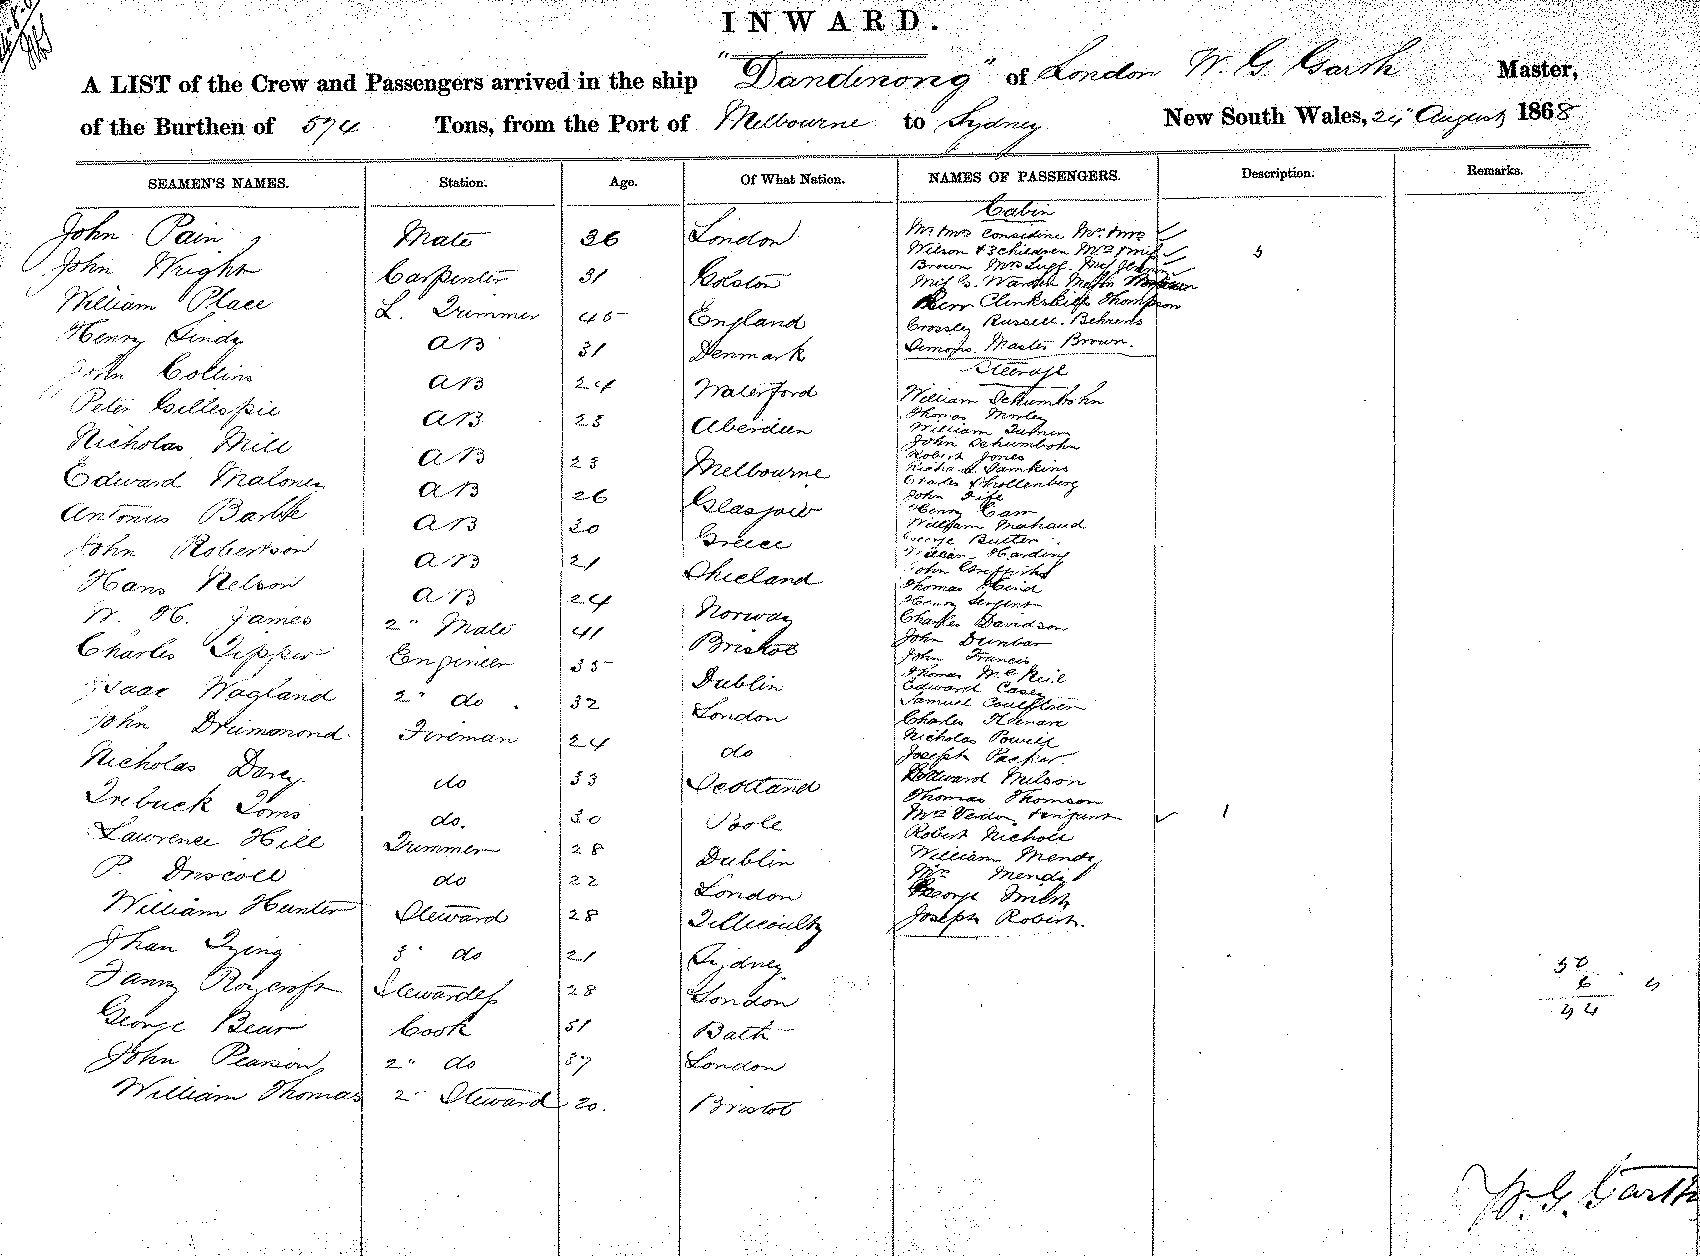 INWARD.
A LIST of the Crew and Passengers arrived in the ship "Dandenong" of London W. G. Garth Master,
of the Burthen of 574 Tons, from the Port of Melbourne to Sydney New South Wales, 24" August 1868
SEAMEN'S NAMES. Station. Age. Of What Nation. NAMES OF PASSENGERS. Description. Remarks.
John Pain Mate 36 London
John Wright Carpenter 31 Boston
William Place L. Trimmer 45 England
Henry Lindy AB 31 Denmark
John Collins AB 24 Waterford
Peter Gillespie AB 23 Aberdeen
Nicholas Mill AB 23 Melbourne
Edward Maloney AB 26 Glasgow
Antonus AB 30 Greece
John Robertson AB 21 Shieland
Hans Nelson AB 24 Norway
W. H. James 2" Mate 41 Bristol
Charles Tipper Engineer 35 Dublin
Isaac Wagland 2" do 32 London
John Drummond Fireman 24 do
Nicholas Darcy do 33 Scotland
Trebuck Toms do. 30 Poole
Lawrence Hill Trimmer 28 Dublin
P. Driscoll do 22 London
William Hunter Steward 28 Tillicoulty
Jhan Tying 3" do 21 Sydney
Fanny Roycroft Stewardess 28 London
George Bear Cook 31 Bath
John Pearson 2" do 37 London
William Thomas 2" Steward 20. Bristol
Cabin
Mr & Mrs Considine Mr & Mrs
Wilson & 3 children Mrs & Miss 5
Brown Mrs Lugg. Miss
Miss G. Warden
Clinkskill Thompson
Crossley Russell. Behrens
Simons. Master Brown.
Steerage
William Schumbohn
Thomas Morley
William
John Schumbohn
Robert Jones
Richard Tamkins
Charles
John Fife
Henry Cam
William Mahaud
George Butler
William Harding
John Griffiths
Thomas Heird
Henry Sergent
Charles Davidson
John Dunbar
John Francis
Thomas McNeil
Edward Casey
Samuel
Charles
Nicholas Powell
Joseph Packer
Edward Milson
Thomas Thomson
Mrs & infant 1
Robert Nicholl
William Mendy
Mrs Mendy
George Smith
Joseph Robert.
50
6
44
W. G. Garth